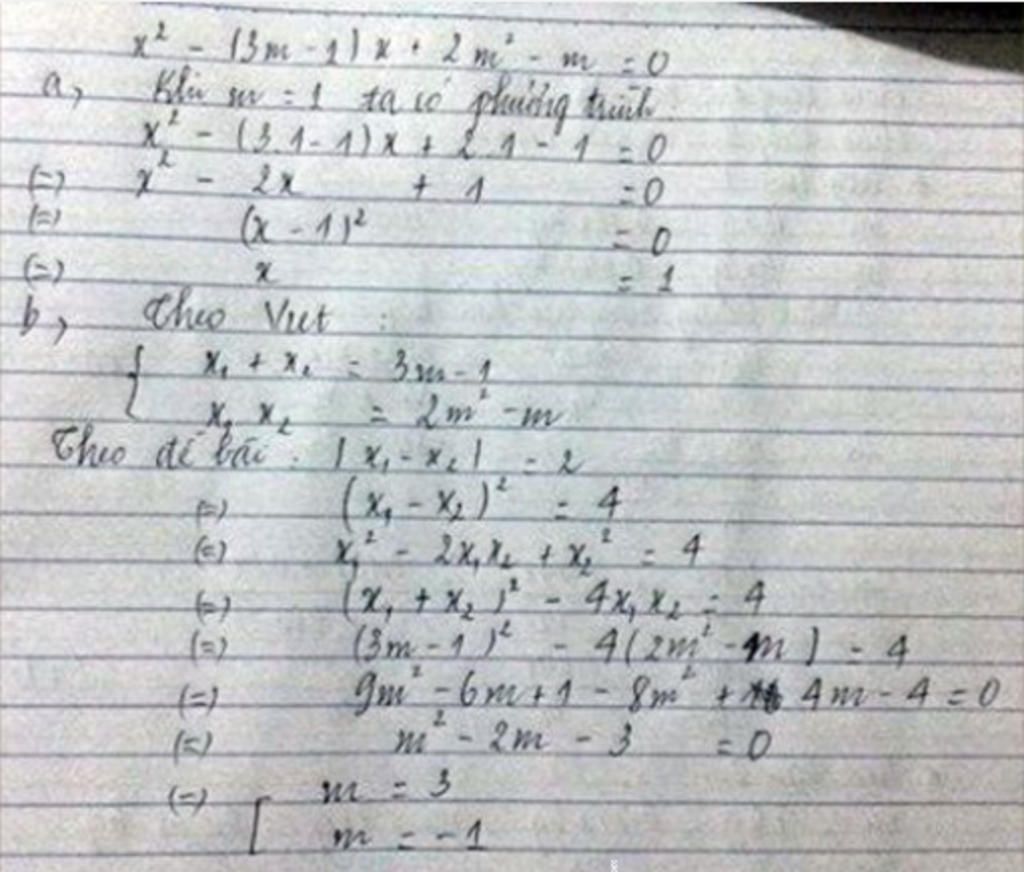 x² - (3m - 1) x + 2m² - m = 0
a, Khi m = 1 ta có phương trình
x² - (3.1 - 1) x + 2.1 - 1 = 0
(=) x² - 2x + 1 = 0
(=) (x - 1)² = 0
(=) x = 1
b, Theo Viet :
{ x₁ + x₂ = 3m - 1
x₁ x₂ = 2m² - m
Theo đề bài : | x₁ - x₂ | = 2
(=) (x₁ - x₂)² = 4
(=) x₁² - 2x₁x₂ + x₂² = 4
(=) (x₁ + x₂)² - 4x₁x₂ = 4
(=) (3m - 1)² - 4(2m² - m) = 4
(=) 9m² - 6m + 1 - 8m² + 4m - 4 = 0
(=) m² - 2m - 3 = 0
(=) [ m = 3
m = - 1